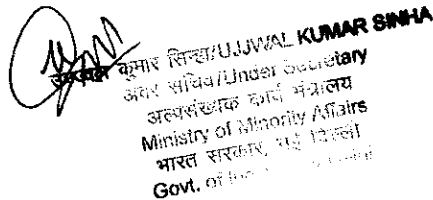 उज्जवल कुमार सिन्हा/UJJWAL KUMAR SINHA
अवर सचिव/Under Secretary
अल्पसंख्यक कार्य मंत्रालय
Ministry of Minority Affairs
भारत सरकार, नई दिल्ली
Govt. of